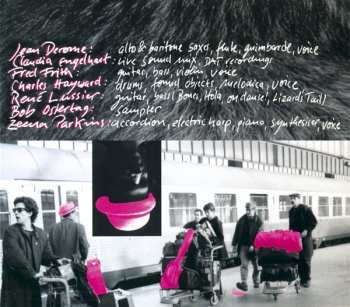 Jean Derome: alto & baritone saxes, flute, guimbarde, voice
Claudia Engelhart: live sound mix, DAT recordings
Fred Frith: guitar, bass, violin, voice
Charles Hayward: drums, found objects, melodica, voice
René Lussier: guitar, bass, bones, Hola on danse!, Lizard's Tail
Bob Ostertag: sampler
Zeena Parkins: accordion, electric harp, piano, synthesizer, voice